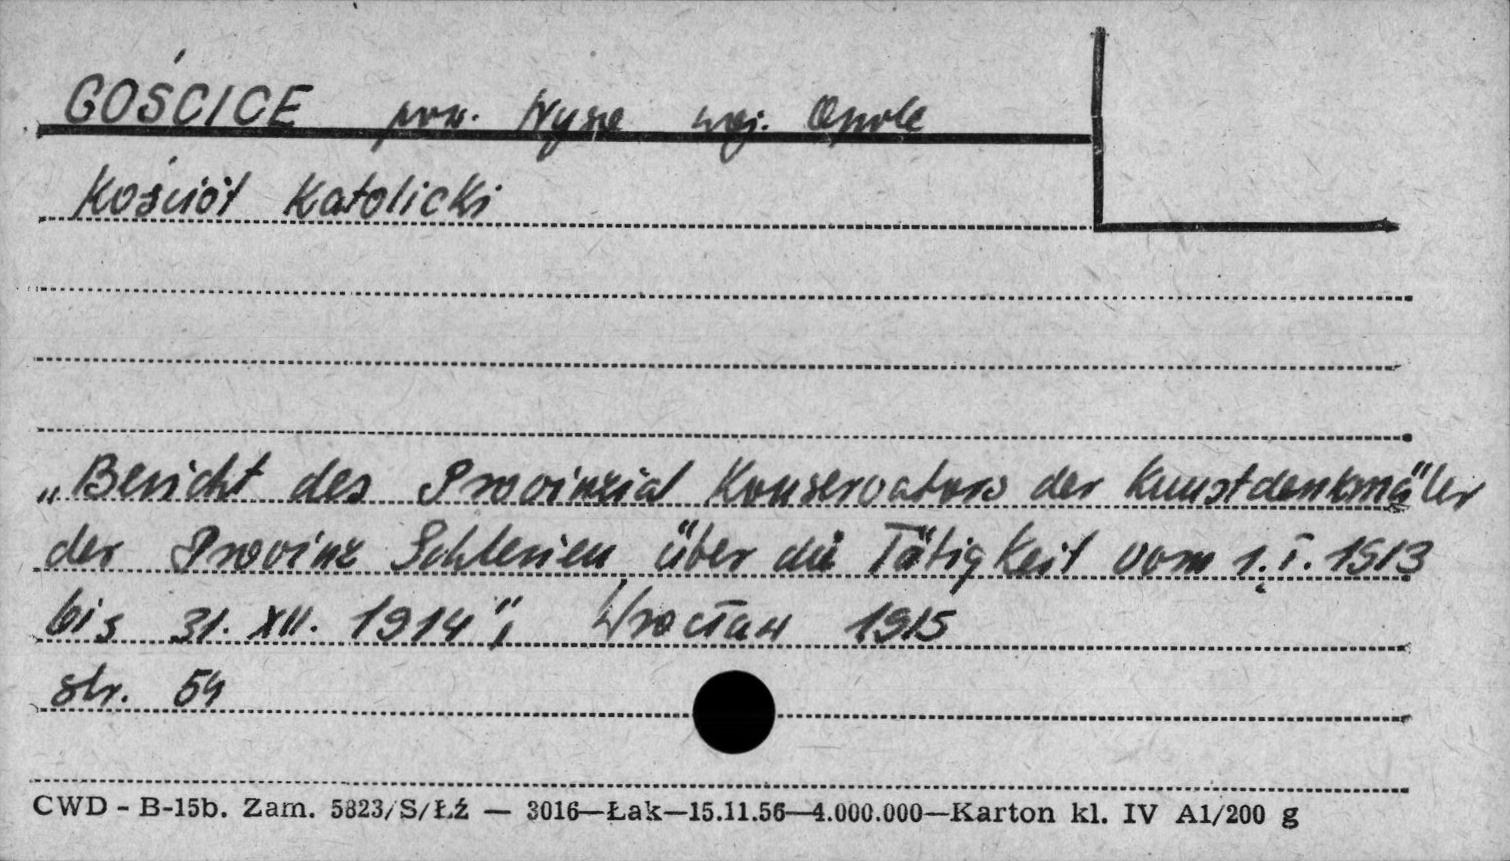 GOŚCICE pow. Nysa woj. Opole
Kościół Katolicki
„Bericht des Provinzial Konservators der Kunstdenkmäler
der Provinz Schlesien über die Tätigkeit vom 1. I. 1913
bis 31. XII. 1914", Wrocław 1915
str. 54
CWD - B-15b. Zam. 5823/S/ŁŹ — 3016—Łak—15.11.56—4.000.000—Karton kl. IV A1/200 g